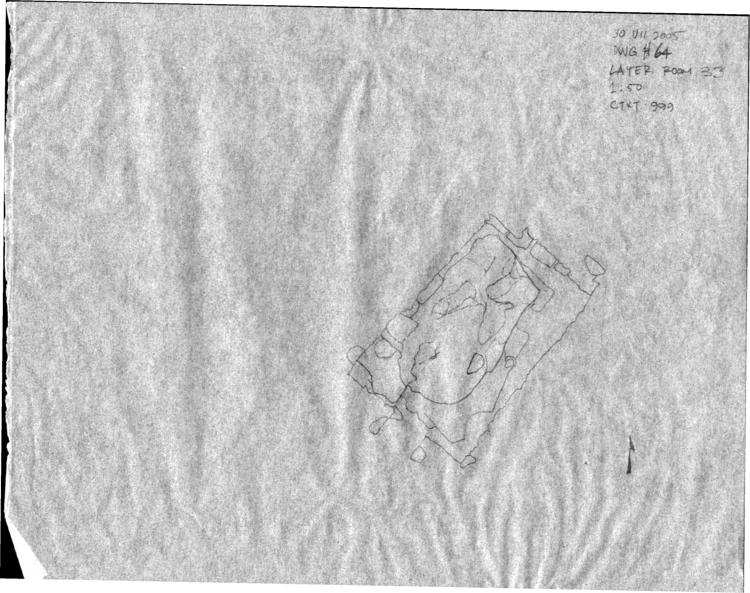 30 VII 2005
DWG #64
LAYER ROOM 33
1:50
CTXT 999